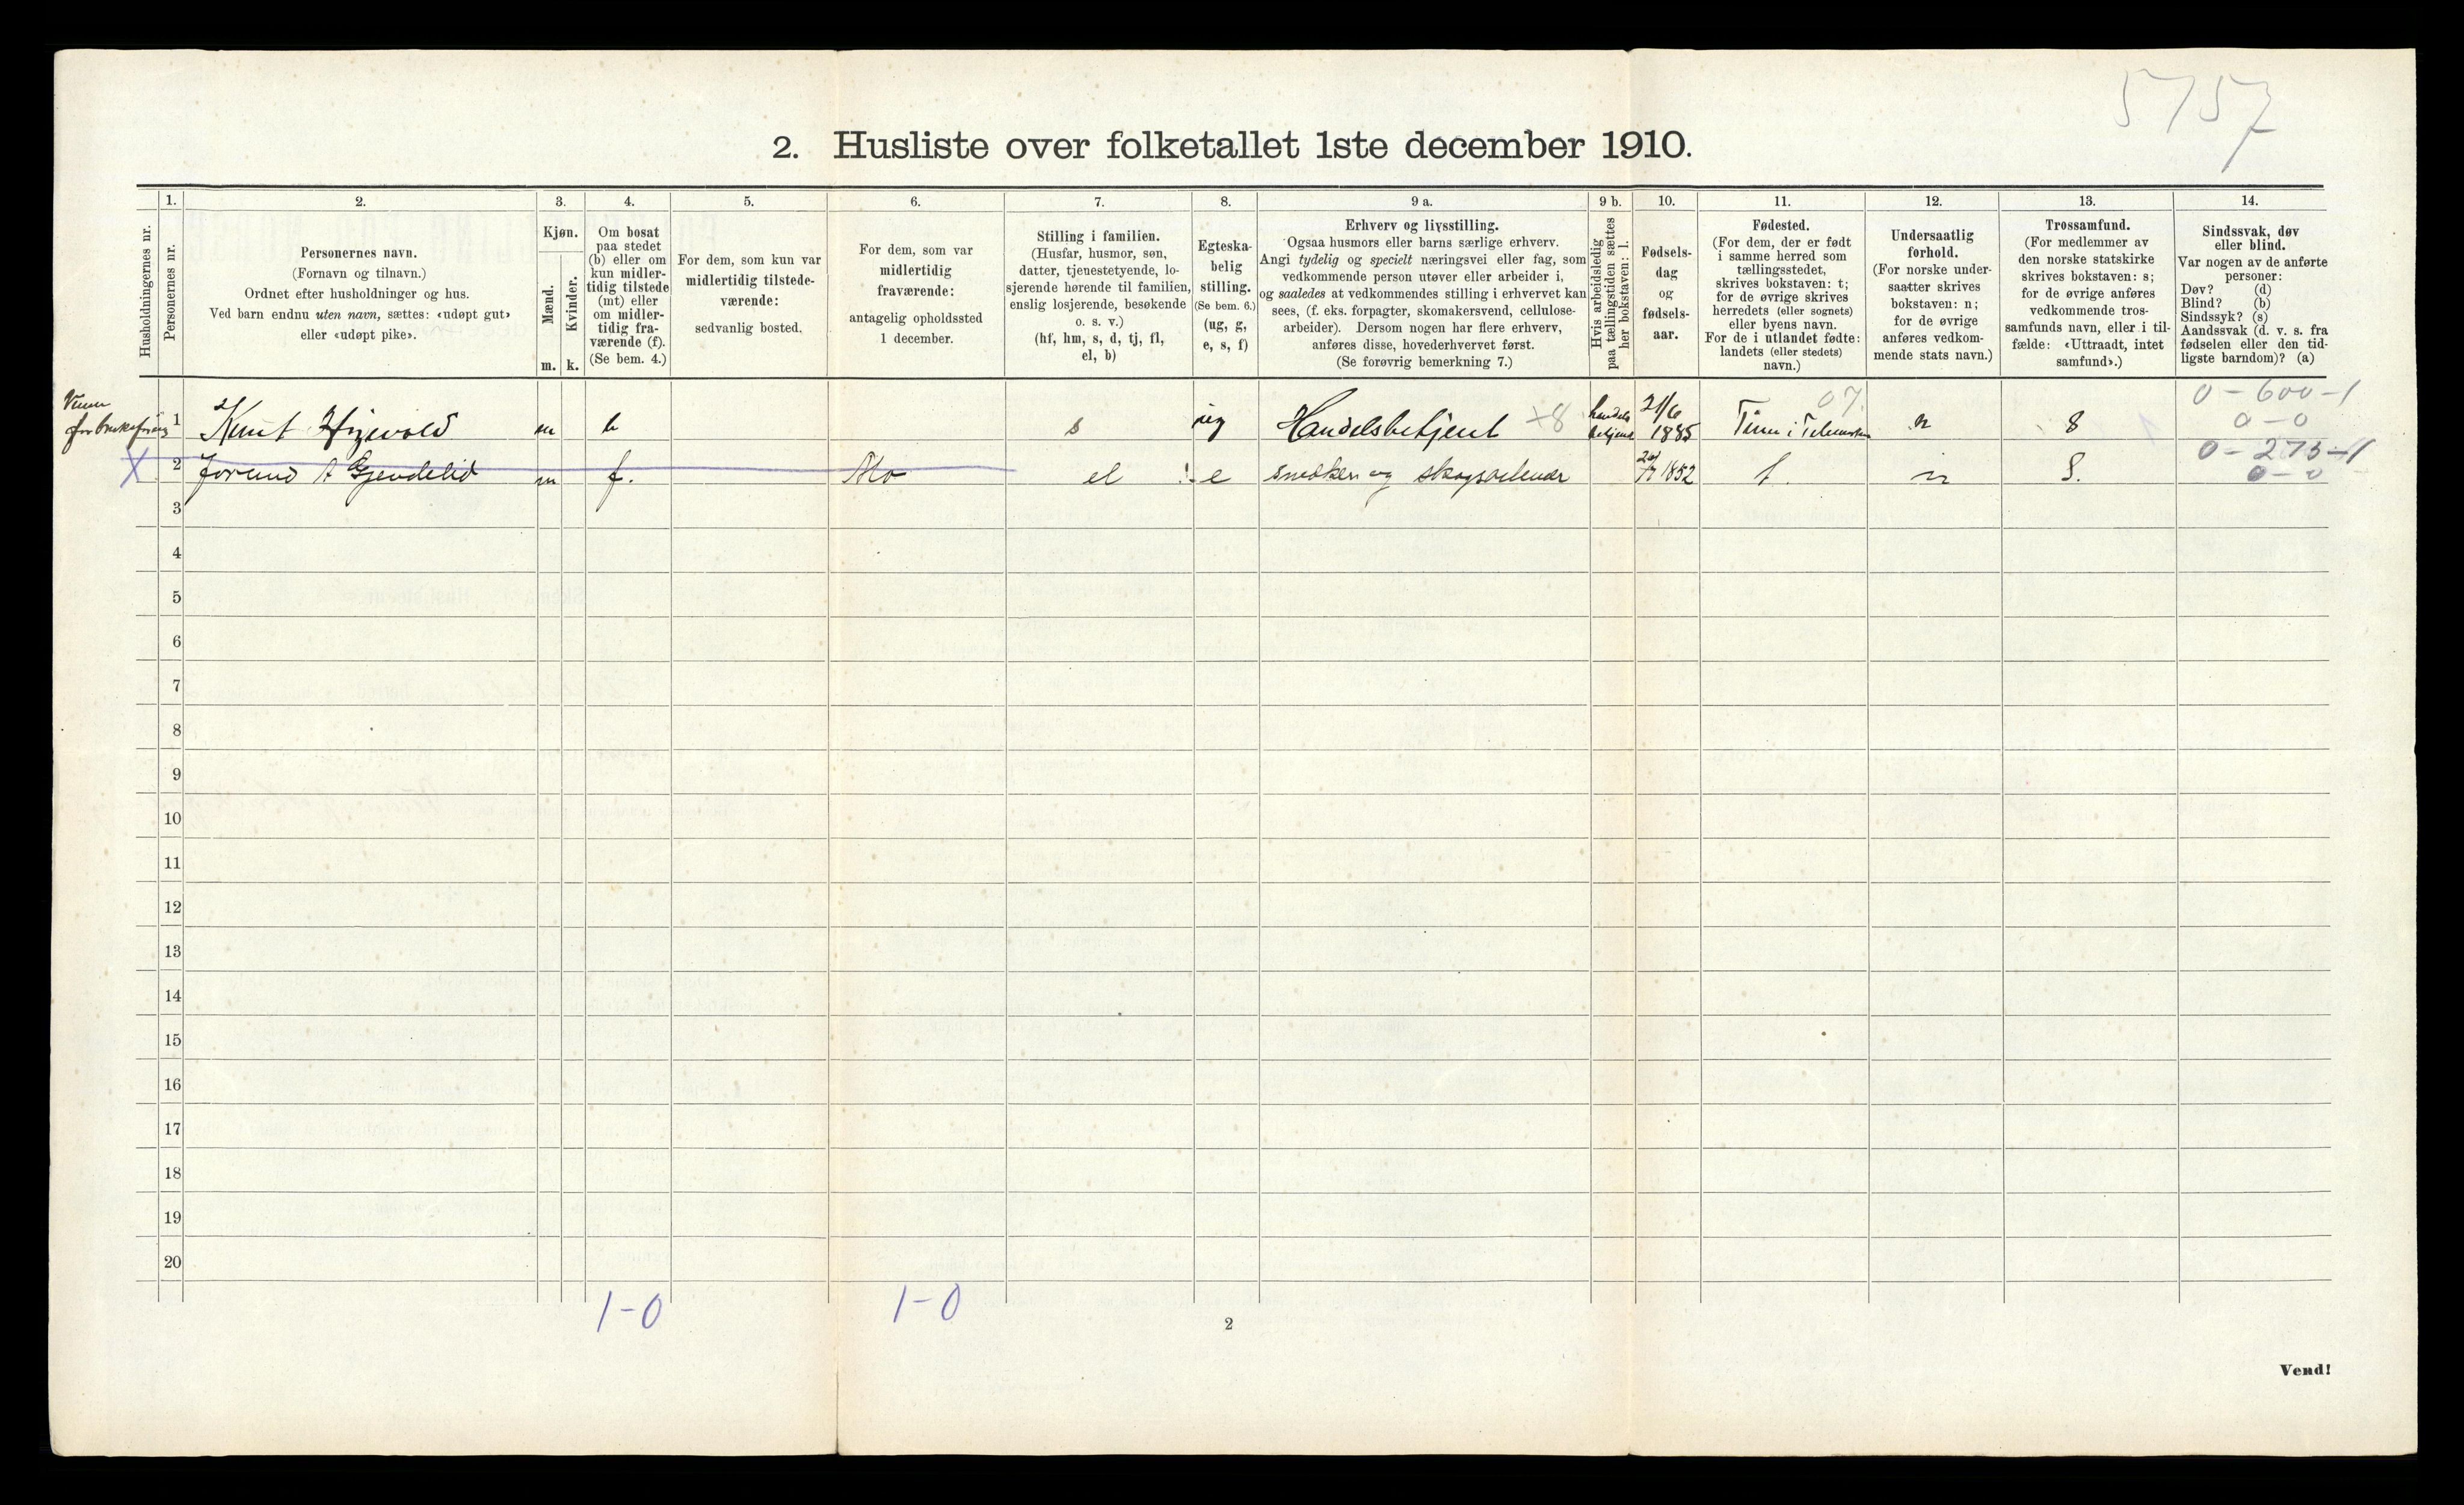 5757
2. Husliste over folketallet 1ste december 1910.
Husholdningernes nr.
1.
Personernes nr.
2.
Personernes navn.
(Fornavn og tilnavn.)
Ordnet efter husholdninger og hus.
Ved barn endnu uten navn, sættes: «udøpt gut»
eller «udøpt pike».
3.
Kjøn.
Mænd.
Kvinder.
m. k.
4.
Om bosat
paa stedet
(b) eller om
kun midler-
tidig tilstede
(mt) eller
om midler-
tidig fra-
værende (f).
(Se bem. 4.)
5.
For dem, som kun var
midlertidig tilstede-
værende:
sedvanlig bosted.
6.
For dem, som var
midlertidig
fraværende:
antagelig opholdssted
1 december.
7.
Stilling i familien.
(Husfar, husmor, søn,
datter, tjenestetyende, lo-
sjerende hørende til familien,
enslig losjerende, besøkende
o. s. v.)
(hf, hm, s, d, tj, fl,
el, b)
8.
Egteska-
belig
stilling.
(Se bem. 6.)
(ug, g,
e, s, f)
9 a.
Erhverv og livsstilling.
Ogsaa husmors eller barns særlige erhverv.
Angi tydelig og specielt næringsvei eller fag, som
vedkommende person utøver eller arbeider i,
og saaledes at vedkommendes stilling i erhvervet kan
sees, (f. eks. forpagter, skomakersvend, cellulose-
arbeider). Dersom nogen har flere erhverv,
anføres disse, hovederhvervet først.
(Se forøvrig bemerkning 7.)
9 b.
Hvis arbeidsledig
paa tællingstiden sættes
her bokstaven: l.
10.
Fødsels-
dag
og
fødsels-
aar.
11.
Fødested.
(For dem, der er født
i samme herred som
tællingsstedet,
skrives bokstaven: t;
for de øvrige skrives
herredets (eller sognets)
eller byens navn.
For de i utlandet fødte:
landets (eller stedets)
navn.)
12.
Undersaatlig
forhold.
(For norske under-
saatter skrives
bokstaven: n;
for de øvrige
anføres vedkom-
mende stats navn.)
13.
Trossamfund.
(For medlemmer av
den norske statskirke
skrives bokstaven: s;
for de øvrige anføres
vedkommende tros-
samfunds navn, eller i til-
fælde: «Uttraadt, intet
samfund».)
14.
Sindssvak, døv
eller blind.
Var nogen av de anførte
personer:
Døv? (d)
Blind? (b)
Sindssyk? (s)
Aandssvak (d. v. s. fra
fødselen eller den tid-
ligste barndom)? (a)
1 Knut m b s ug Handelsbetjent +8 handels betjent 21/6 1885 Tinn i Telemarken 07 n s 0-600-1
0-0
X 2 Jorund A Gjendelid m f. Mo el e snekker og skogsarbeider 1852 t. n s. 0-275-11
0-0
3
4
5
6
7
8
9
10
11
12
13
14
15
16
17
18
19
20
1-0 1-0
2
Vend!